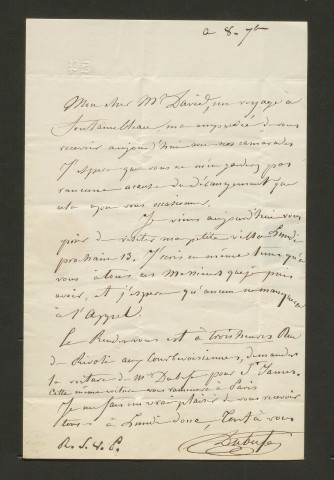 ce 8. 7bre
Mon cher Mr David, un voyage à
Fontainebleau m'a empêché de vous
recevoir aujourd'hui avec nos camarades
J'espère que vous ne m'en gardez pas
rancune à cause du dérangement que
cela a pu vous occasionner.
Je viens aujourd'hui vous
prier de visiter ma petite villa Lundi
prochain 13. J'écris en même temps qu'à
vous à tous ces Messieurs que je puis
avoir, et j'espère qu'aucun ne manquera
à l'appel.
Le Rendez-vous est à trois heures Rue
de Rivoli aux Courbevoisiennes, demandez
la voiture de Mr Dubufe pour St James.
Cette même voiture vous ramènera à Paris
Je me fais un vrai plaisir de vous recevoir
tous à Lundi donc Tout à vous
R. S. V. P. Dubufe